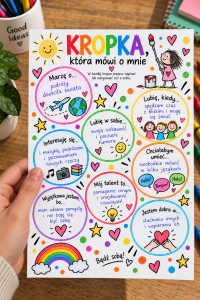 Good
Ideas
KROPKA,
która mówi o mnie
W każdej kropce możesz napisać
lub narysować coś o sobie.
Marzę o...
podróży
dookoła świata
Lubię, kiedy...
spędzam czas
z bliskimi i mogę
się śmiać
Lubię w sobie...
swoją ciekawość
i poczucie
humoru
Interesuję się
muzyką, podróżami
i poznawaniem
nowych rzeczy
Chciałabym
umieć...
swobodnie mówić
w kilku językach
Hello!
Mój talent to...
pomaganie innym
i znajdowanie
rozwiązań
Wyjątkowa jestem
bo...
mam własne pomysły
i nie boję się
być sobą
Jestem dobra w...
słuchaniu innych
i wspieraniu ich
Bądź sobą!